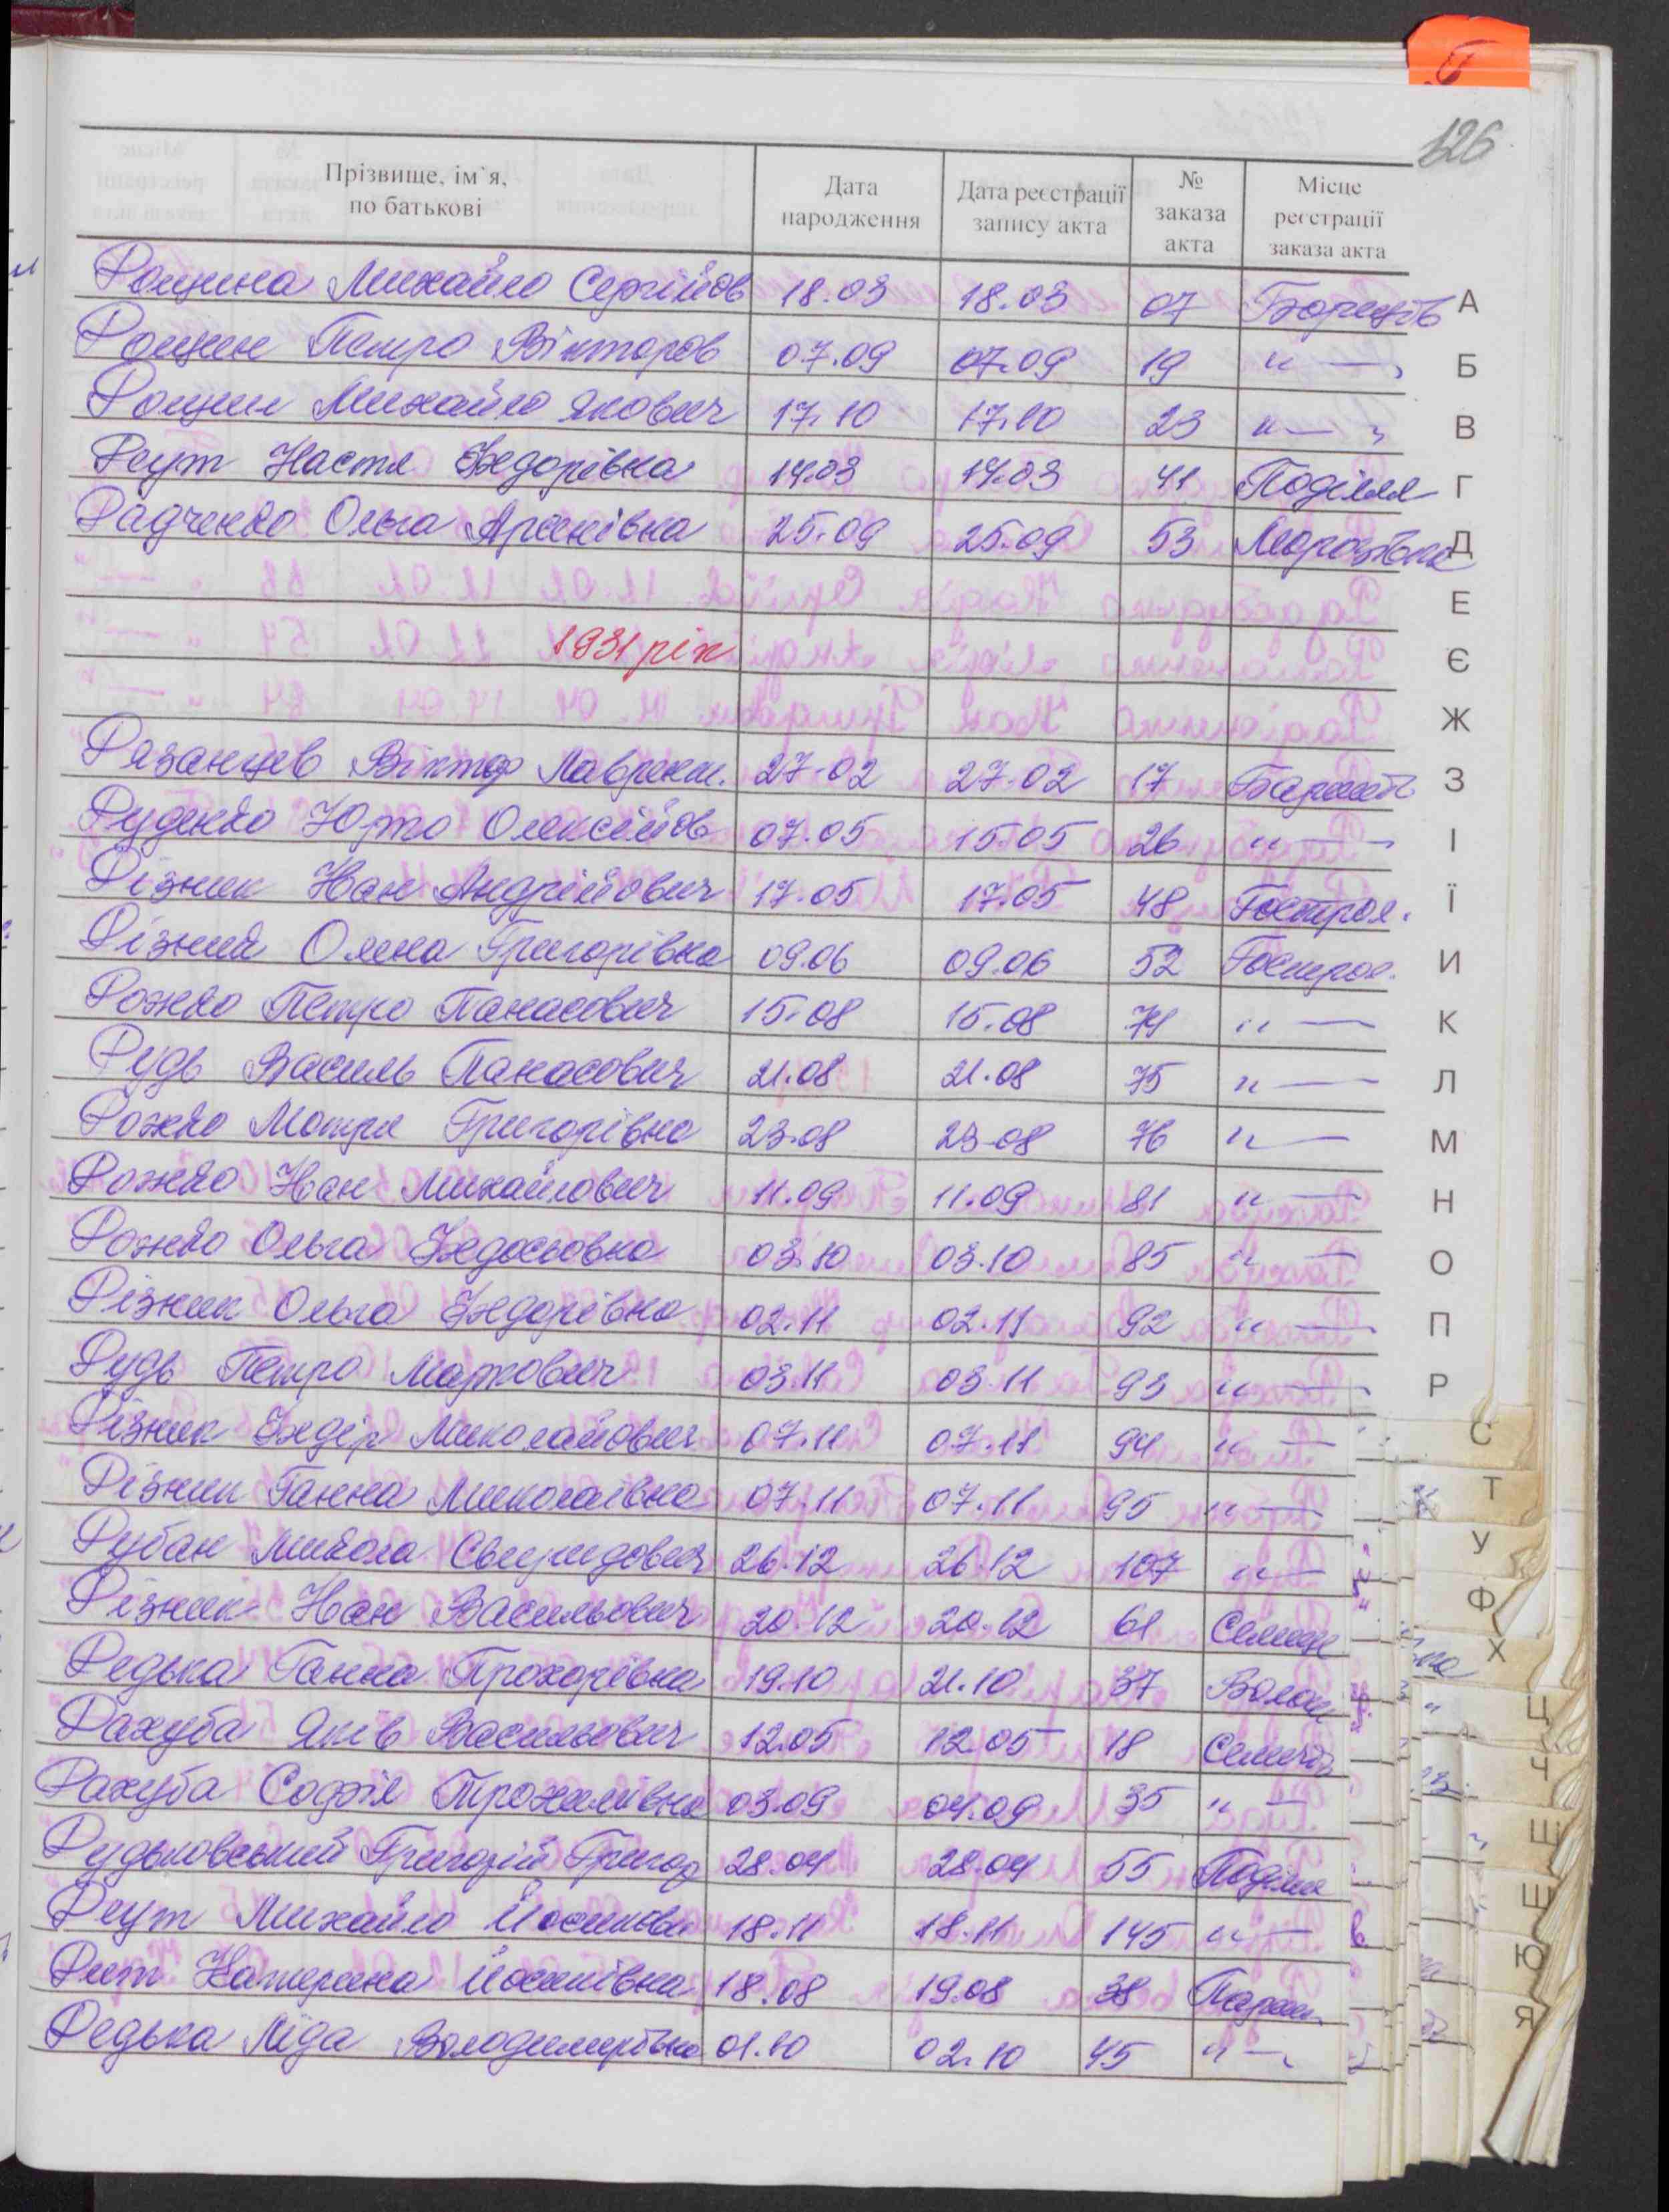 126
Прізвище, ім`я, по батькові | Дата народження | Дата реєстрації запису акта | № заказа акта | Місце реєстрації заказа акта
Рощина Михайло Сергійов 18.03 18.03 07 Борщів
Рощин Петро Вікторов 07.09 07.09 19 " — "
Рощин Михайло Якович 17.10 17.10 23 " — "
Реут Настя Федорівна 14.03 14.03 41 Поділля
Радченко Ольга Арсенівна 25.09 25.09 53 Морозівка
1931 рік
Рязанцев Віктор Лаврент. 27.02 27.02 17
Руденко Юрко Олексійов 07.05 15.05 26 " — "
Різник Іван Андрійович 17.05 17.05 48 Гострол.
Різник Олена Григорівна 09.06 09.06 52 Гострол.
Рожко Петро Панасович 15.08 15.08 74 " —
Рудь Василь Панасович 21.08 21.08 75 " —
Рожко Мотря Григорівна 23.08 23.08 76 " —
Рожко Іван Михайлович 11.09 11.09 81 " —
Рожко Ольга Федосьовна 03.10 03.10 85 " —
Різник Ольга Федорівна 02.11 02.11 92 " —
Рудь Петро Маркович 03.11 03.11 93 " —
Різник Федір Миколайович 07.11 07.11 94 " —
Різник Ганна Миколаївна 07.11 07.11 95 " —
Рубан Микола Свиридович 26.12 26.12 107 " —
Різник Іван Васильович 20.12 20.12 61
Редька Ганна Прохорівна 19.10 21.10 37 Волош
Рахуба Яків Васильович 12.05 12.05 18
Рахуба Софія Трохимівна 03.09 04.09 35 " —
Рудьковський Григорій Григор 28.04 28.04 55 Поділля
Реут Михайло Йосипов 18.11 18.11 145 " —
Реут Катерина Йосипівна 18.08 19.08 38
Редька Ліда Володимирівна 01.10 02.10 45 " —
А
Б
В
Г
Д
Е
Є
Ж
З
І
Ї
И
К
Л
М
Н
О
П
Р
С
Т
У
Ф
Х
Ц
Ч
Щ
Ш
Ю
Я